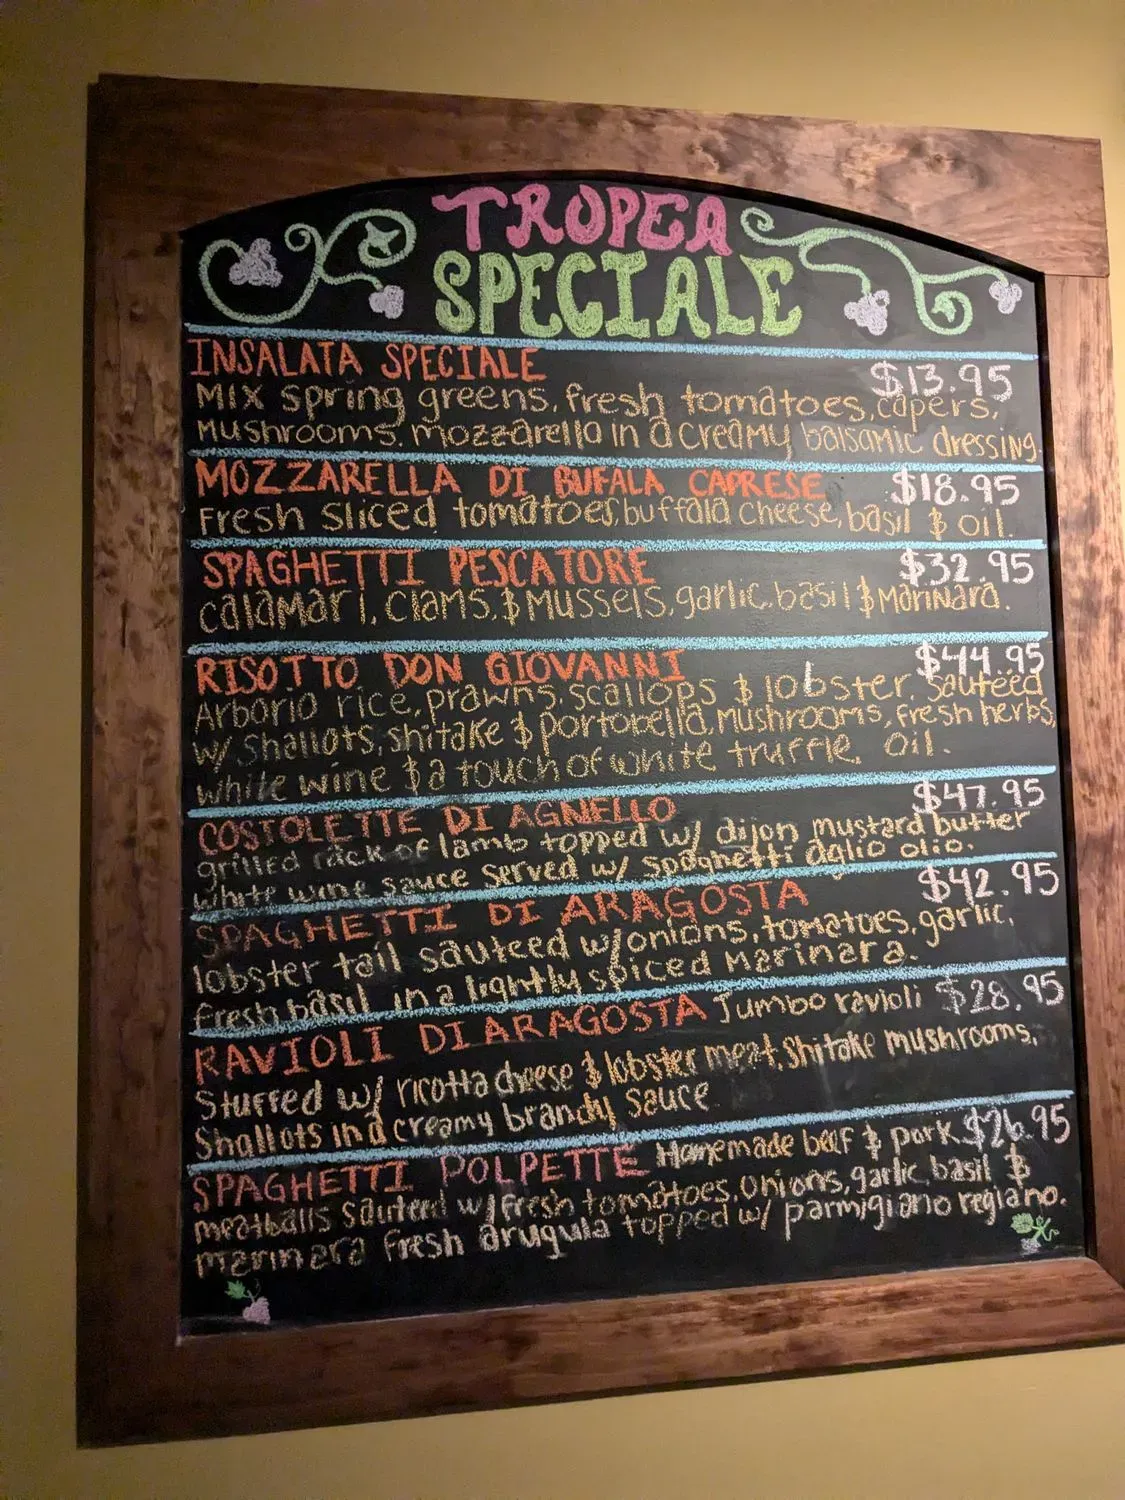 TROPEA
SPECIALE
INSALATA SPECIALE $13.95
Mix spring greens, fresh tomatoes, capers,
mushrooms, mozzarella in a creamy balsamic dressing.
MOZZARELLA DI BUFALA CAPRESE $18.95
Fresh sliced tomatoes, buffala cheese, basil & oil.
SPAGHETTI PESCATORE $32.95
calamari, clams, & mussels, garlic, basil & marinara.
RISOTTO DON GIOVANNI $44.95
Arborio rice, prawns, scallops & lobster. Sauteed
w/ shallots, shitake & portobella mushrooms, fresh herbs,
white wine & a touch of white truffle oil.
COSTOLETTE DI AGNELLO $47.95
grilled rack of lamb topped w/ dijon mustard butter
white wine sauce served w/ spaghetti aglio olio.
SPAGHETTI DI ARAGOSTA $42.95
lobster tail sauteed w/onions, tomatoes, garlic,
fresh basil in a lightly spiced marinara.
RAVIOLI DI ARAGOSTA Jumbo ravioli $28.95
Stuffed w/ ricotta cheese & lobster meat, shitake mushrooms,
Shallots in a creamy brandy sauce
SPAGHETTI POLPETTE Homemade beef & pork $26.95
meatballs sauteed w/fresh tomatoes, onions, garlic, basil &
marinara fresh arugula topped w/ parmigiano regiano.